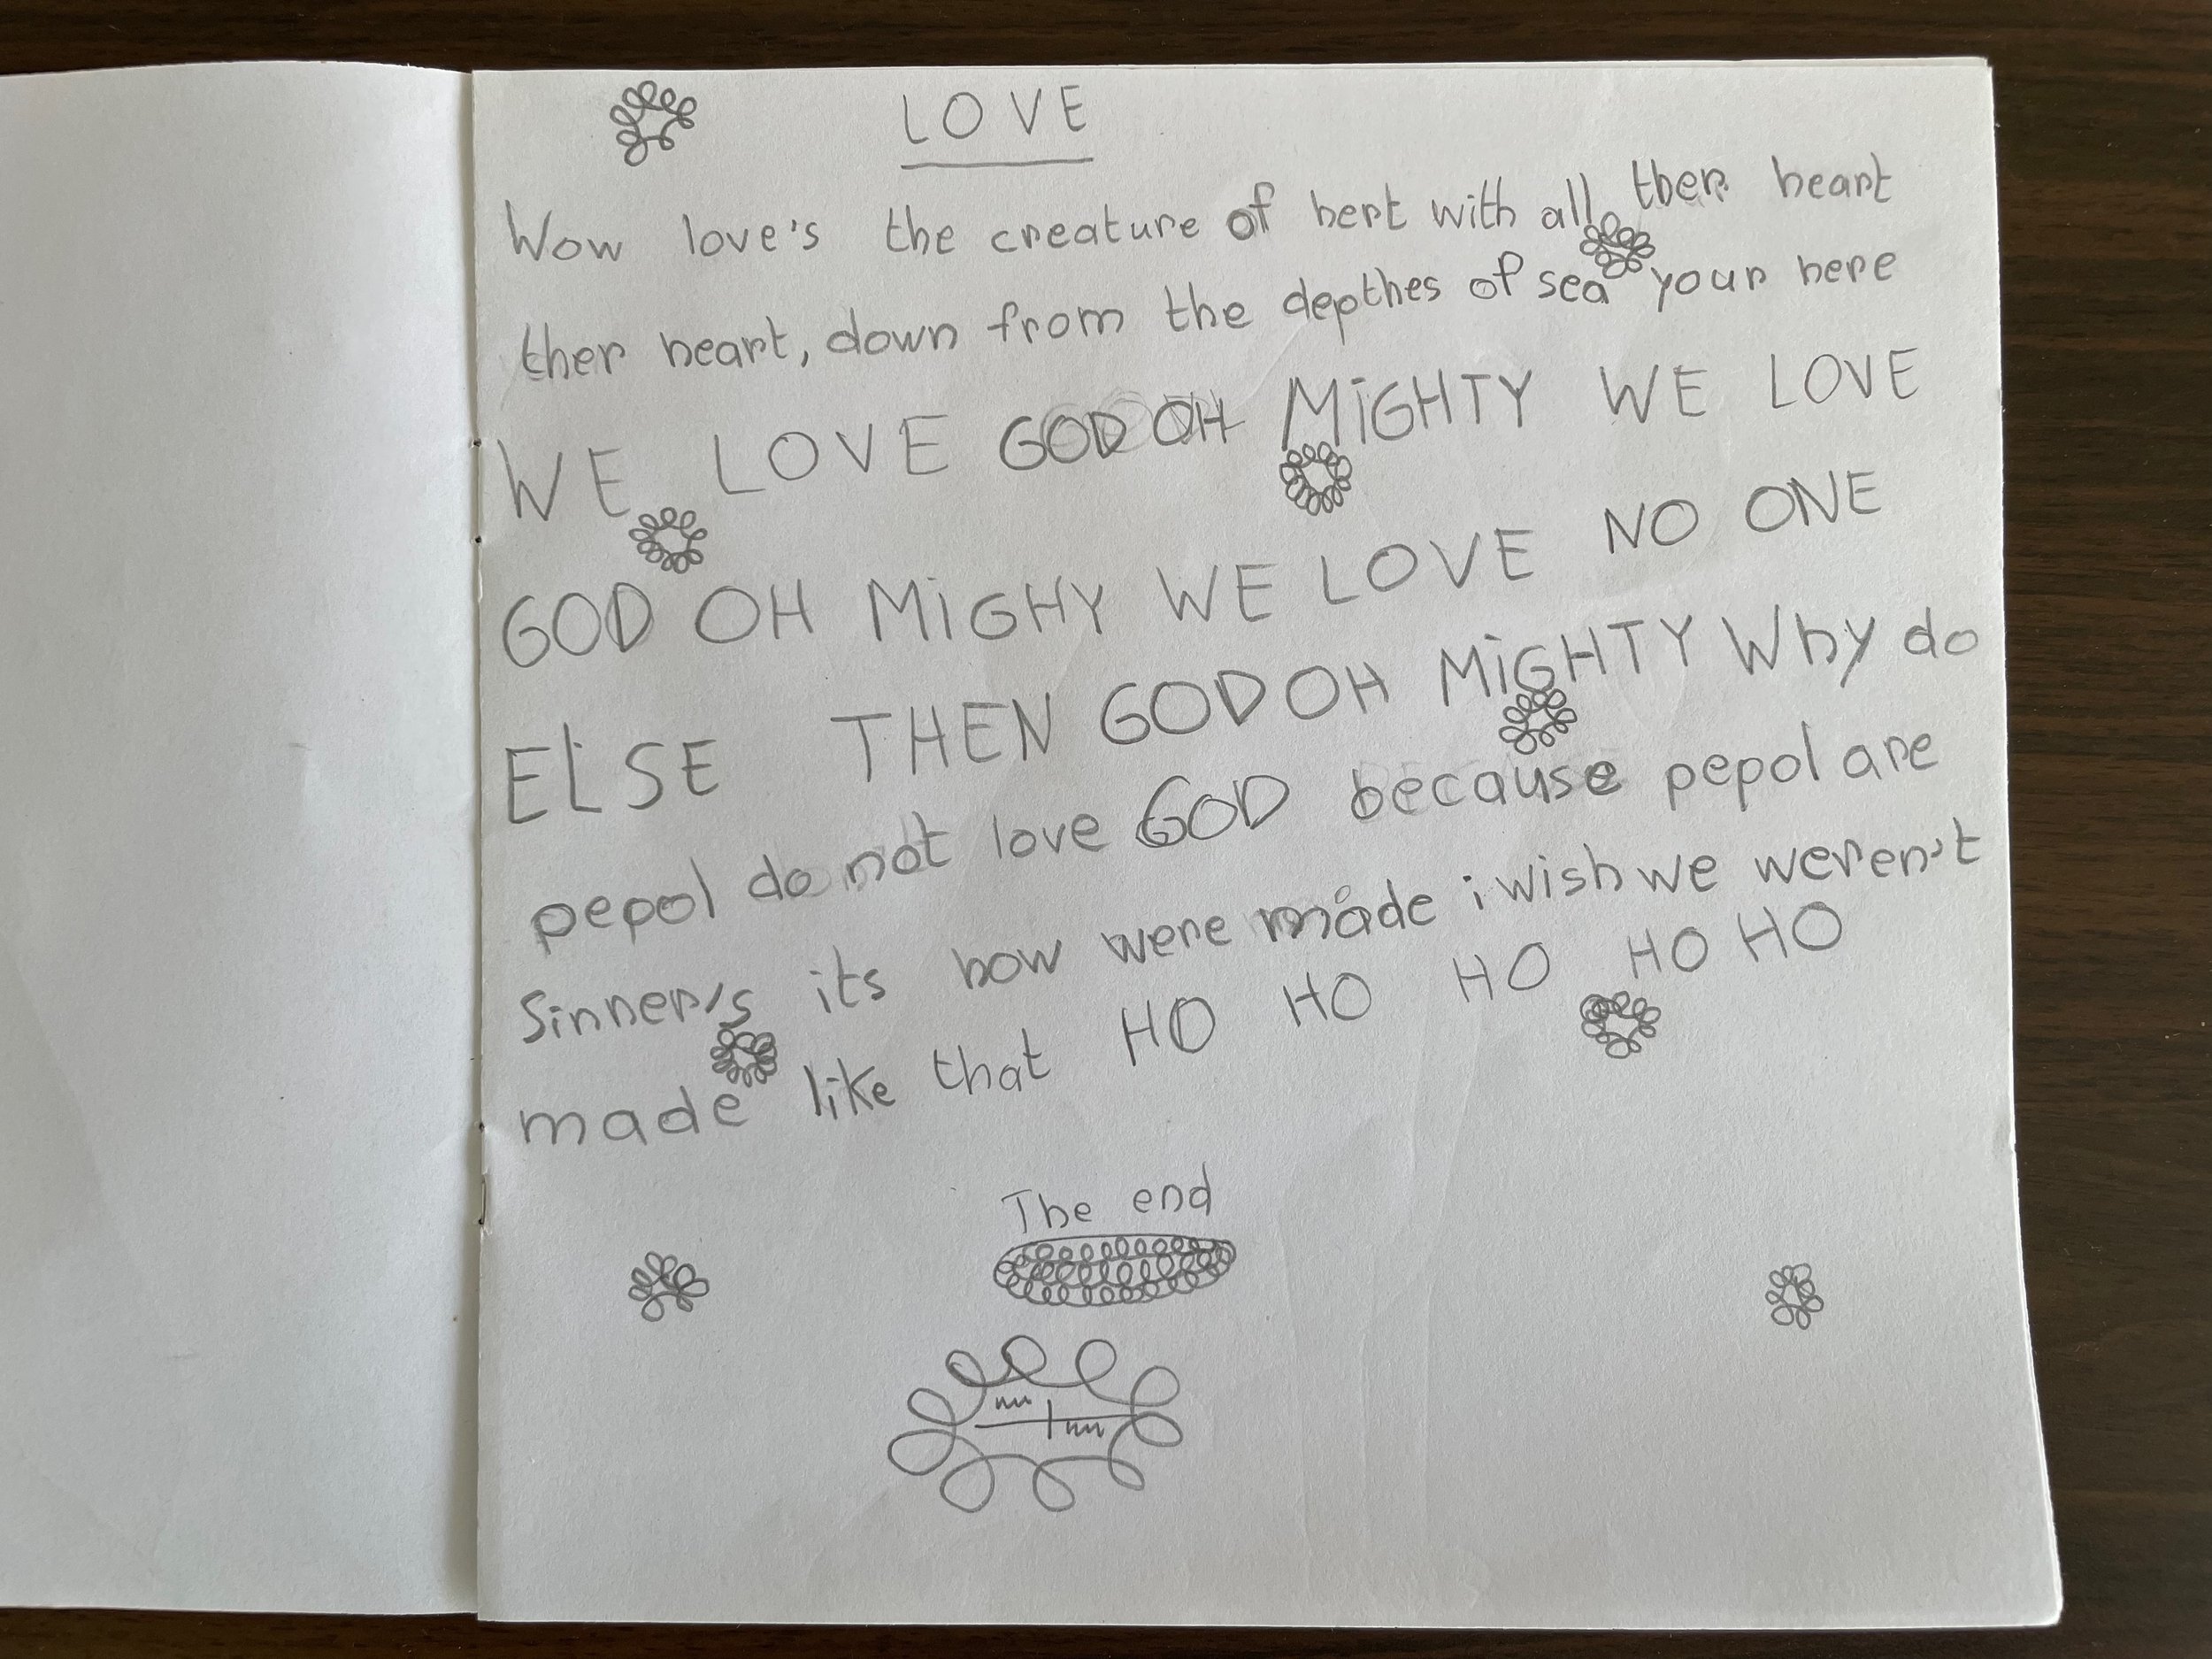 LOVE
Wow love's the creature of hert with all ther heart
ther heart, down from the depthes of sea your here
WE LOVE GOD OH MiGHTY WE LOVE
GOD OH MiGHY WE LOVE NO ONE
ELSE THEN GOD OH MiGHTY Why do
pepol do not love GOD because pepol are
Sinner's its how were made i wish we weren't
made like that HO HO HO HO HO
The end